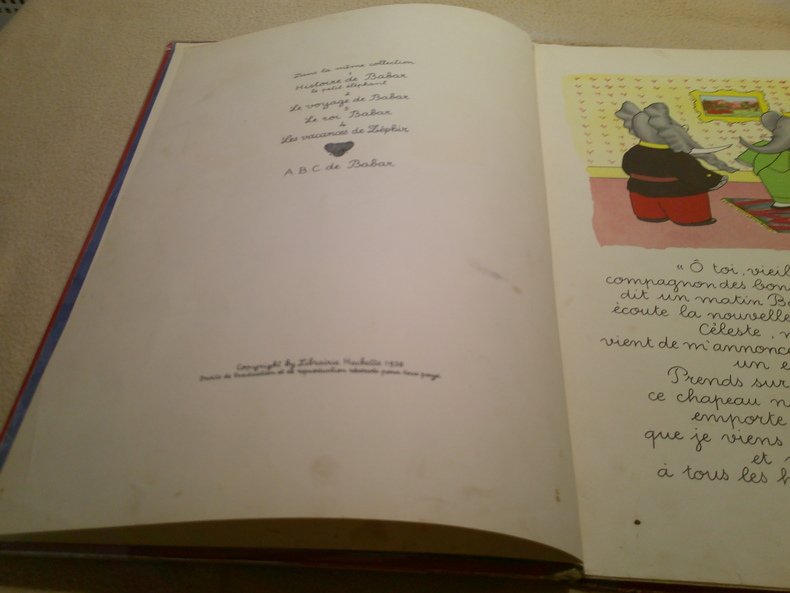 Dans la même collection
1
Histoire de Babar
le petit éléphant
2
Le voyage de Babar
3
Le roi Babar
4
Les vacances de Zéphir
A.B.C de Babar
Copyright by Librairie Hachette 1938
Droits de traduction et de reproduction réservés pour tous pays.
« Ô toi, vieil
compagnon des bon
dit un matin Ba
écoute la nouvelle
Céleste, m
vient de m'annonce
un e
Prends sur
ce chapeau n
emporte
que je viens
et
à tous les h